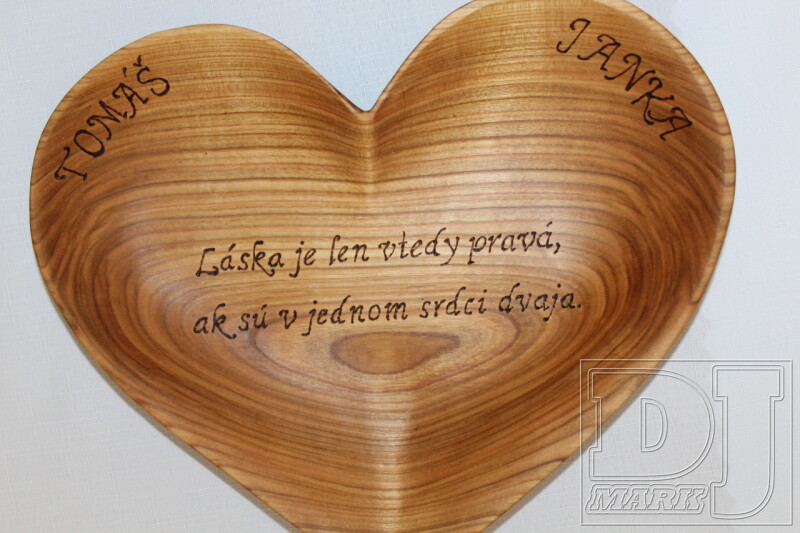 TOMÁŠ
JANKA
Láska je len vtedy pravá,
ak sú v jednom srdci dvaja.
DJ
MARK